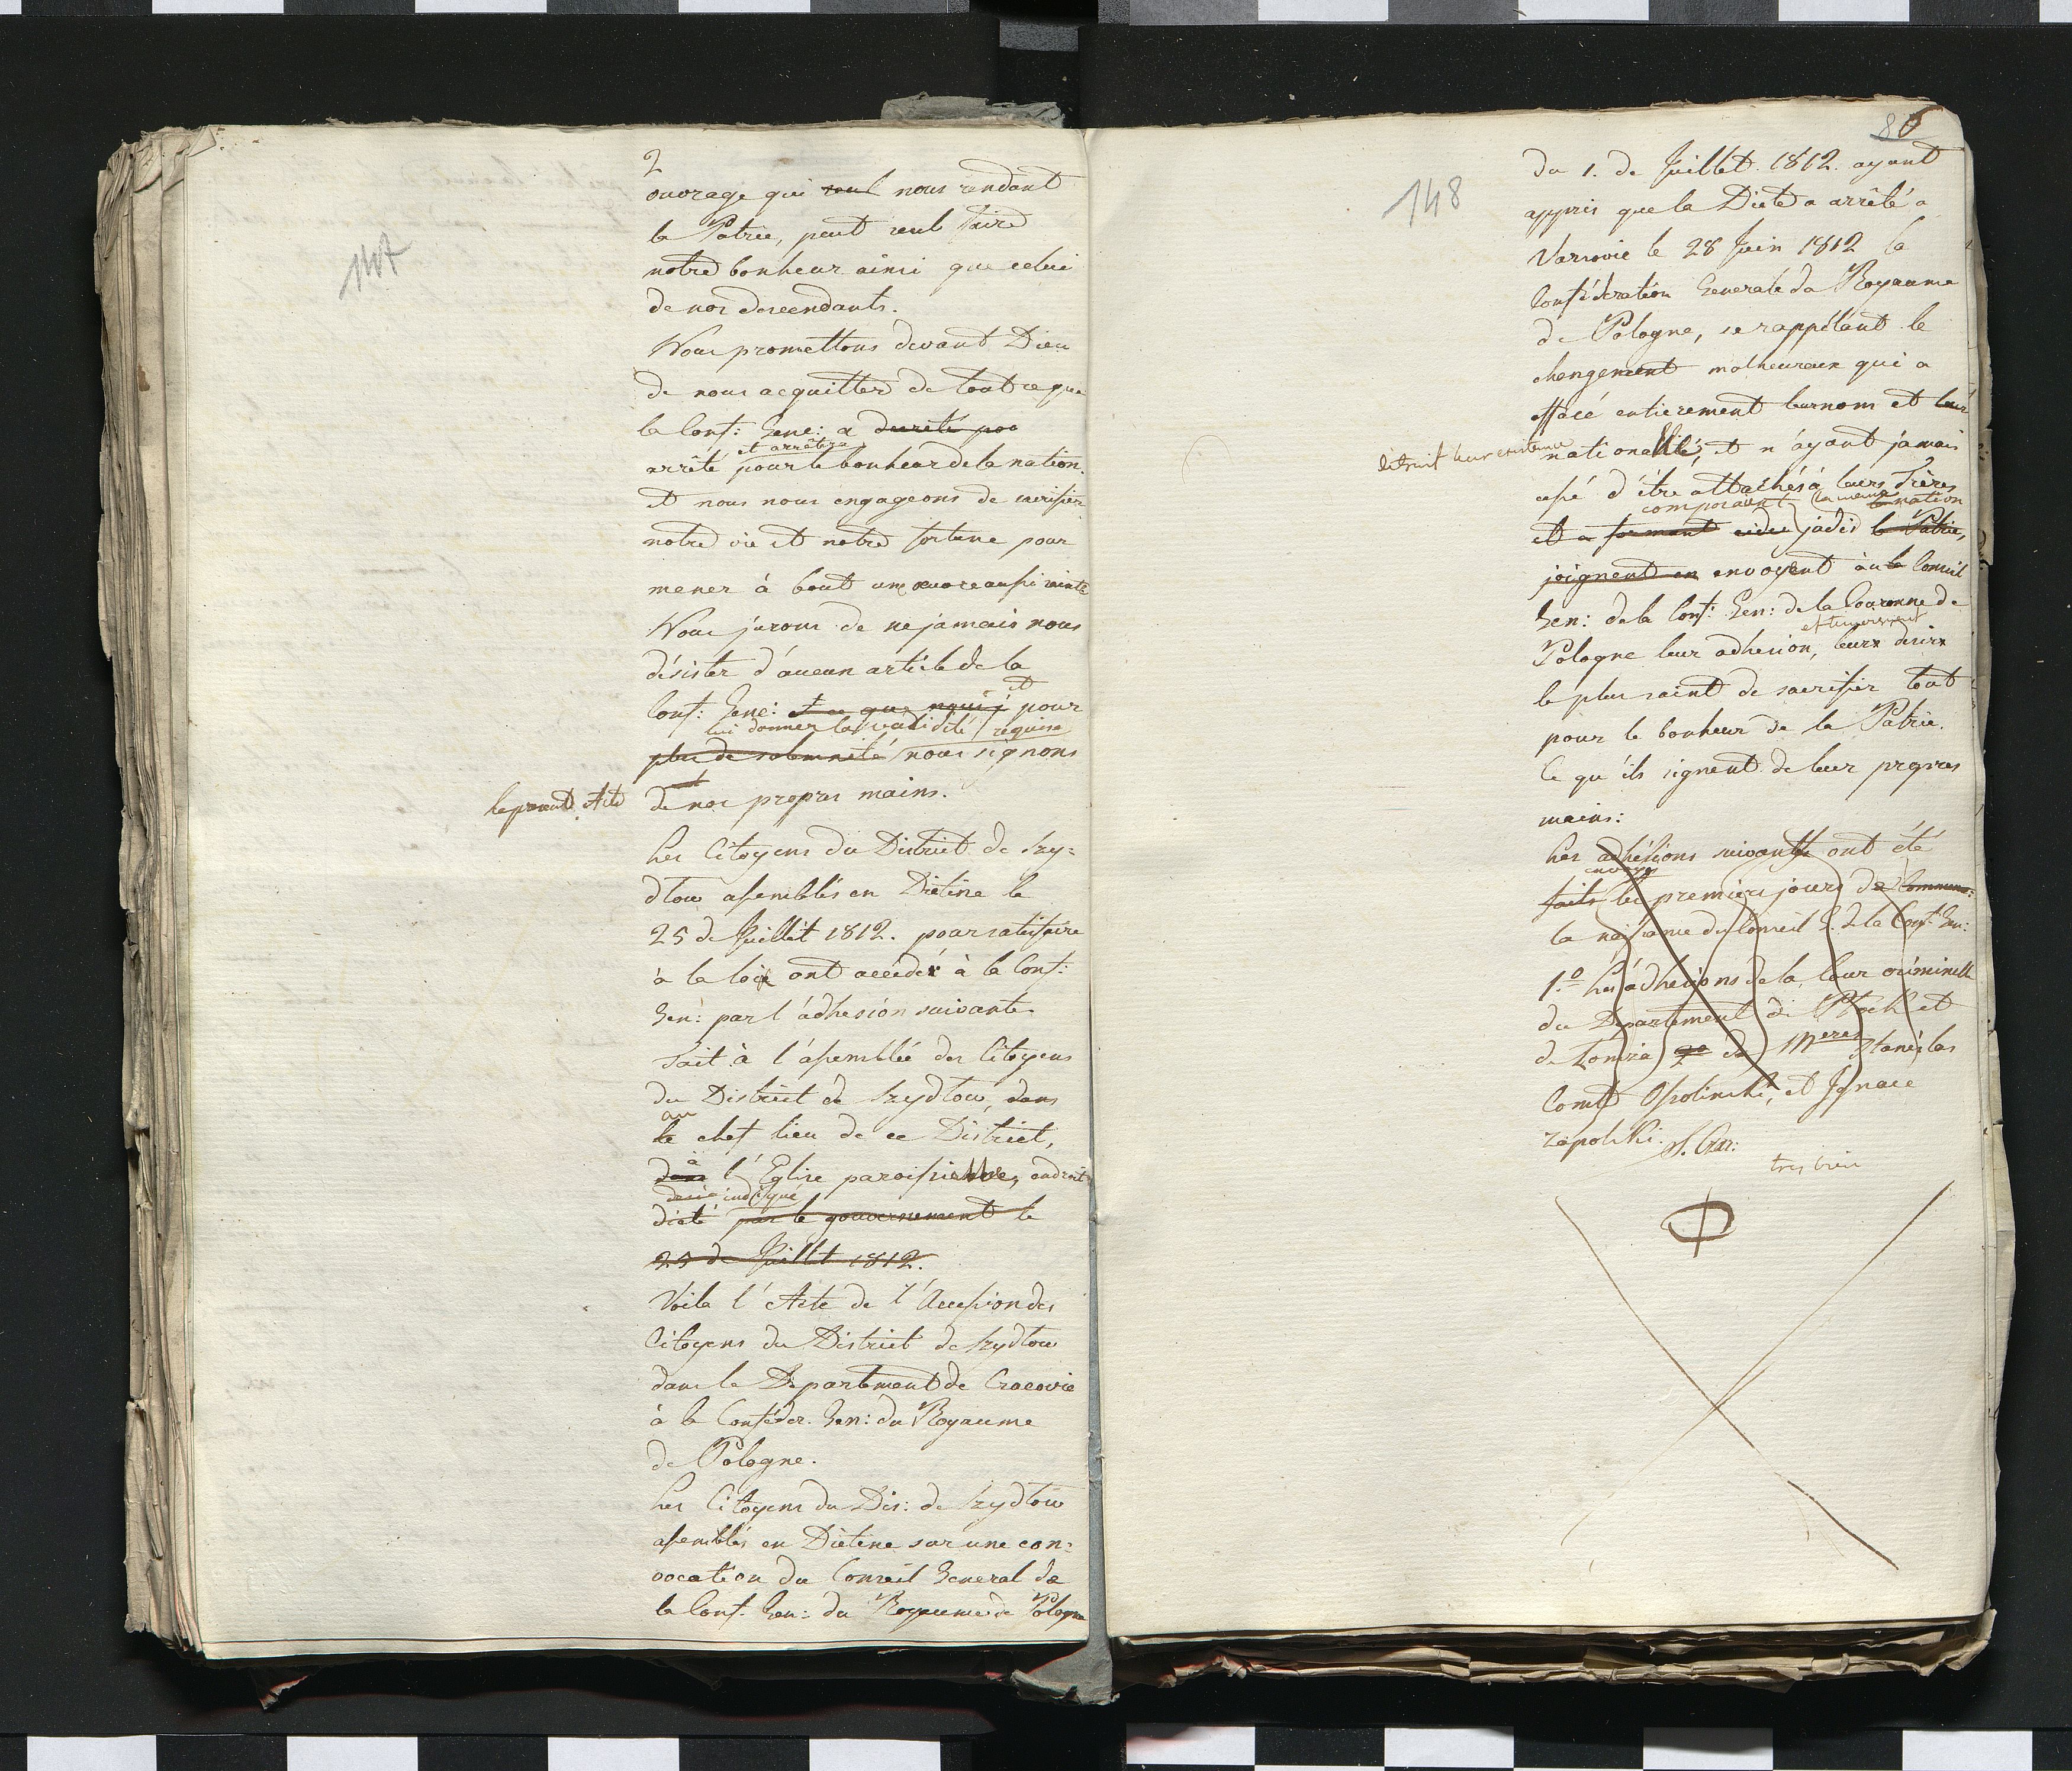 147
2
ouvrage qui seul nous rendant
la Patrie, peut seul faire
notre bonheur ainsi que celui
de nos descendants.
Nous promettons devant Dieu
de nous acquitter de tout ce que
la Conf: Gene: a
et arrêtera
arrêté pour le bonheur de la nation.
et nous nous engageons de sacrifier
notre vie et notre fortune pour
mener à bout une œuvre aussi sainte
Nous jurons de ne jamais nous
désister d'aucun article de la
et
Conf: Gene: pour
lui donner la validité requise
plus de solemnité nous signons
le present Acte
de nos propres mains.
Les Citoyens du District de Szy=
dłow assemblés en Dietine le
25 de Juillet 1812. pour satisfaire
à la loi ont accedé à la Conf:
Gen: par l'adhesion suivante
Fait à l'assemblée des Citoyens
du District de Szydłow, dans
au
le chef lieu de ce District,
à
dans l'Eglise paroissiale, endroit
indiqué
dicté par le gouvernement le
25 de Juillet 1812.
Voila l'Acte de l'Accession des
Citoyens du District de Szydłow
dans le Departement de Cracovie
à la Confeder. Gen: du Royaume
de Pologne.
Les Citoyens du Dis: de Szydłow
assemblés en Dietine sur une con=
vocation du Conseil General de
la Conf. Gen: du Royaume de Pologne
86
148
du 1. de Juillet 1812. ayant
appris que la Diete a arrêté a
Varsovie le 28 Juin 1812 la
Confédération Generale du Royaume
de Pologne, se rappélant le
changement malheureux qui a
effacé entierement leur nom et leur
détruit leur existence
nationalité, et n'ayant jamais
cessé d'être attachés à leurs Frères
composant la meme nation
et formant jadis la Patrie,
joignent en envoyent au Conseil
Gen: de la Conf: Gen: de la Couronne de
et
Pologne leur adhesion, leurs desirs
le plus saint de sacrifier tout
pour le bonheur de la Patrie.
Ce qu'ils signent de leur propres
mains:
Les adhésions suivantes ont été
envoyé
faits les premiers jours de
la naissance du Conseil G. de la Conf: Gen:
1.o Les adhesions de la Cour criminelle
du Departement de Płock et
de Łomża de Stanislas
Comte Ossolinski, et Ignace
Zapolski.
tres bien